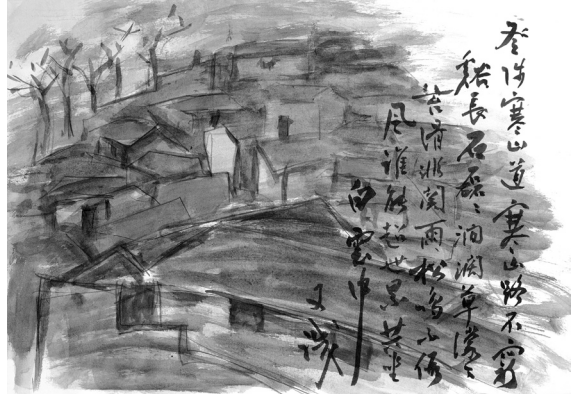 登陟寒山道寒山路不窮
谿長石磊々澗濶草濛々
苔滑非関雨松鳴不假
風誰能超世累共坐
白雲中